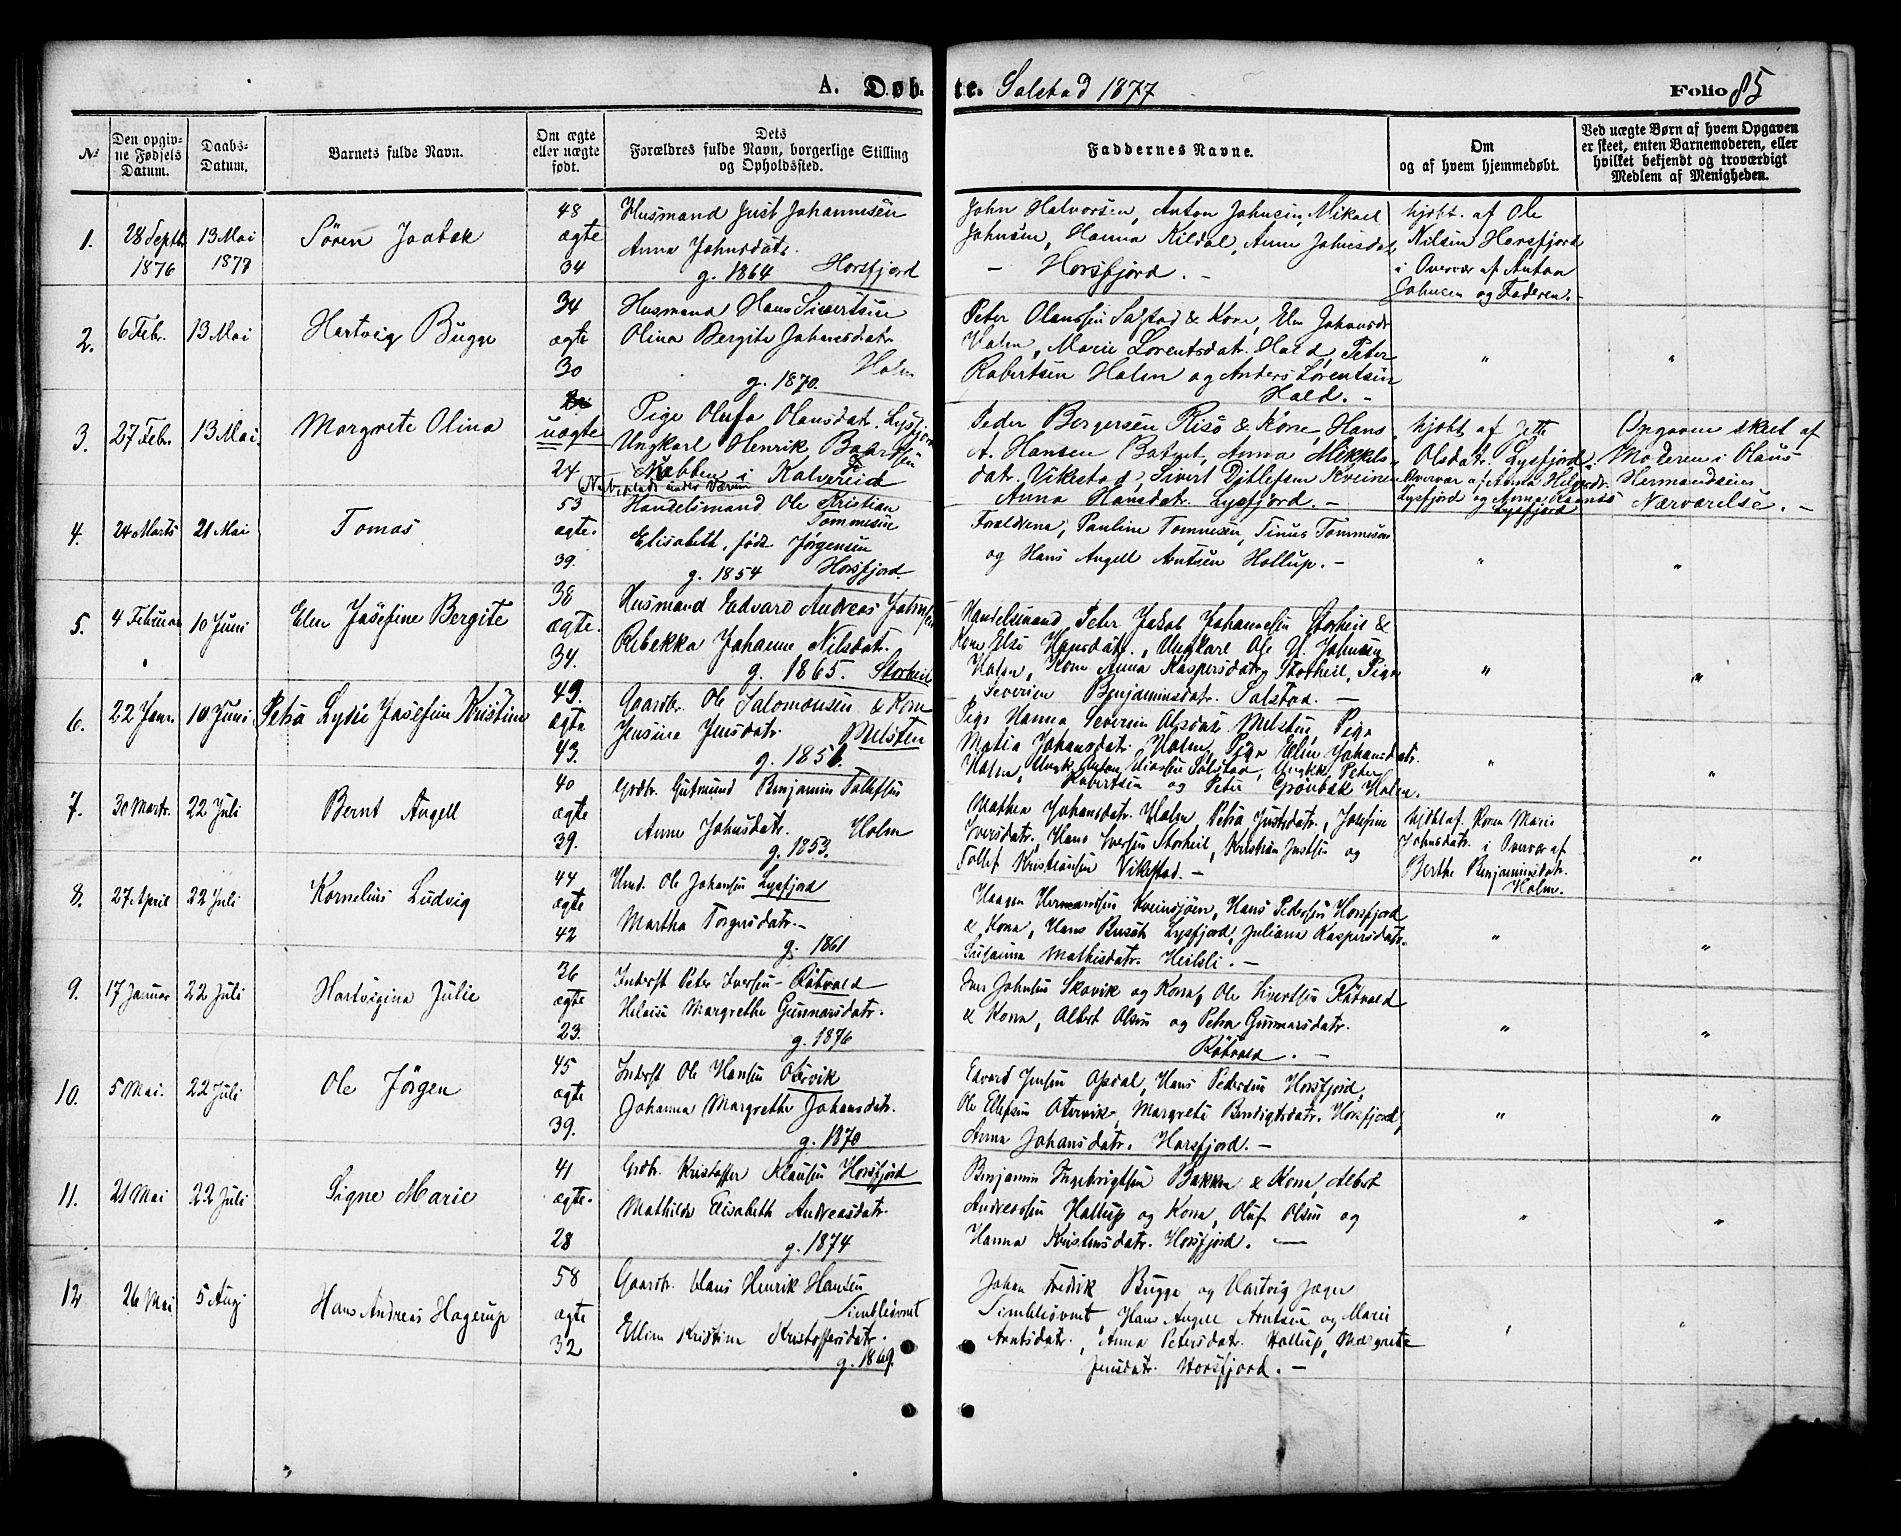 A. Døbte. Solstad 1877
Folio 85
№
Den opgiv-
ne Fødsels
Datum.
Daabs-
Datum.
Barnets fulde Navn.
Om ægte
eller uægte
født.
Dets
Forældres fulde Navn, borgerlige Stilling
og Opholdssted.
Faddernes Navne.
Om
og af hvem hjemmedøbt.
Ved uægte Børn af hvem Opgaven
er skeet, enten Barnemoderen, eller
hvilket bekjendt og troværdigt
Medlem af Menigheden.
1.
28 Septbr
1876
13 Mai
1877
Sören
48
ægte
34
Husmand Just Johannesen
Anna Johnsdatr.
g. 1864 Horsfjord
John Halvorsen, Anton Johnsen, Mikael
Johnsen, Hanna Kildal, Anne Johnsdatr
- Horsfjord. -
hjdbt. af Ole
Nilsen Horsfjord
i Overvær af Anton
Johnsen og Faderen. -
2.
6 Febr.
13 Mai
Hartvig Bugge
34
ægte
30
Husmand Hans Sivertsen
Olina Bergite Johansdatr
Holm
g. 1870.
Peter Olaussen Solstad & Kone, Elen Johansdr
Holm, Marie Lorentsdatr. Hald, Peter
Robertsen Holm og Anders Lorentsen
Hald. -
"
"
3.
27 Febr.
13 Mai
Margrete Olina
uægte
24
Pige Olufa Olausdatr. Lysfjord
Ungkarl Henrik Baardsen
Nabben i Kalvereid
Peder Borgersen Risö & Kone, Hans
A. Hansen Batnet, Anna Mikkels-
datr. Vikestad, Sivert Ditlefsen Kveine
Anna Hansdatr. Lysfjord. -
hjdbt af Jette
Olsdatr. Lysfjord i
Overvær af Anna
Lysfjord og Anna
Lysfjord
Opgaven skeet af
Moderen i Olaus
Hermandsens
Nærværelse. -
4.
24 Marts
21 Mai
Tomas
53
ægte.
39.
Handelsmand Ole Kristian
Tommesen
Elisabeth, født Jørgensen
g. 1854 Horsfjord.
Forældrene, Pauline Tommesen, Tinus Tommesen
og Hans Angell Arntsen Hollup. -
"
"
5.
4 Februar
10 Juni
Elen Josefine Bergite
38
ægte.
34.
Husmand Edvard Andreas Johnsen
Rebekka Johanne Nilsdatr.
g. 1865. Storheil
Handelsmand Peter Jakob Johannesen Storheil &
Kone Else Hansdatr., Ungkarl Ole N. Johnsen
Holm, Kone Anna Kaspersdatr Storheil, Pige
Severien Benjaminsdatr. Solstad. -
"
"
6.
22 Janr.
10 Juni
Petra Lydie Josefine Kristine
49.
ægte
43.
Gaardbr. Ole Salomonsen & Kone
Jensine Jensdatr. Melsten
g. 1856.
Pige Hanna Severin Olsdatr Melsten, Pige
Matia Johansdatr. Holm, Pige Elen Johansdatr.
Holm, Ungk. Anton Solstad, Ungk. Peter
Robertsen og Peter Grönbek Holm.
"
"
7.
30 Marts.
22 Juli
Bernt Angell
40
ægte
39.
Grdbr. Gutmund Benjamin Tollefsen
Anne Johnsdatr. Holm
g. 1853.
Mathea Johansdatr. Holm, Petra Justsdatr., Josefine
Iversdatr., Hans Iversen Storheil, Kristian Justsen og
Tollef Kristiansen Vikestad. -
hjdbt af. Karen Marie
Johnsdatr. i Overvær af
Berthe Benjaminsdatr.
Holm.
"
8.
27 April
22 Juli
Kornelius Ludvig
44
ægte
42
Hmd. Ole Johansen Lysfjord
Martha Torgersdatr. -
g. 1861
Haagen Hermandsen Kveinsjøen, Hans Pedersen Horsfjord
& Kone, Hans Busch Lysfjord, Juliana Kaspersdatr.
Susanna Mathisdatr. Heilsli. -
"
"
9.
17 Januar
22 Juli
Hartvigina Julie
36
ægte
23.
Inderst Peter Iversen - Råtvold
Heloise Margrethe Gunnarsdatr.
g. 1876
Iver Johnsen Skavik og Kone, Ole Sivertsen Råtvold
& Kone, Albert Olsen og Petra Gunnarsdatr.
Råtvold. -
"
"
10.
5 Mai.
22 Juli
Ole Jörgen
45
ægte
39.
Inderst Ole Hansen Otervik
Johanna Margrethe Johansdatr.
g. 1870
Edvard Jensen Opdal, Hans Pedersen Horsfjord,
Ole Ellefsen Otervik, Margrete Bendigtsdatr. Horsfjord,
Anna Johansdatr. Horsfjord. -
"
"
11.
21 Mai
22 Juli
Signe Marie
41
ægte.
28
Grdbr. Kristoffer Klausen Horsfjord
Mathilde Elisabeth Andreasdatr.
g. 1874
Benjamin Ingebrigtsen Bakken & Kone, Albert
Andreassen Hollup og Kone, Oluf Olsen og
Hanna Kristensdatr. Horsfjord. -
"
"
12
26 Mai
5 Aug
Hans Andreas Hagerup
58
ægte
32
Gaardbr. Claus Henrik Hansen
Simblesøvnet
Elline Kristine Kristoffersdatr.
g. 1869.
Johan Fredrik Bugge og Hartvig Jæger
Simblesøvnet, Hans Angell Arntsen og Marie
Arntsdatr., Anna Petersdatr. Hollup, Margrete
Jensdatr. Horsfjord. -
"
"